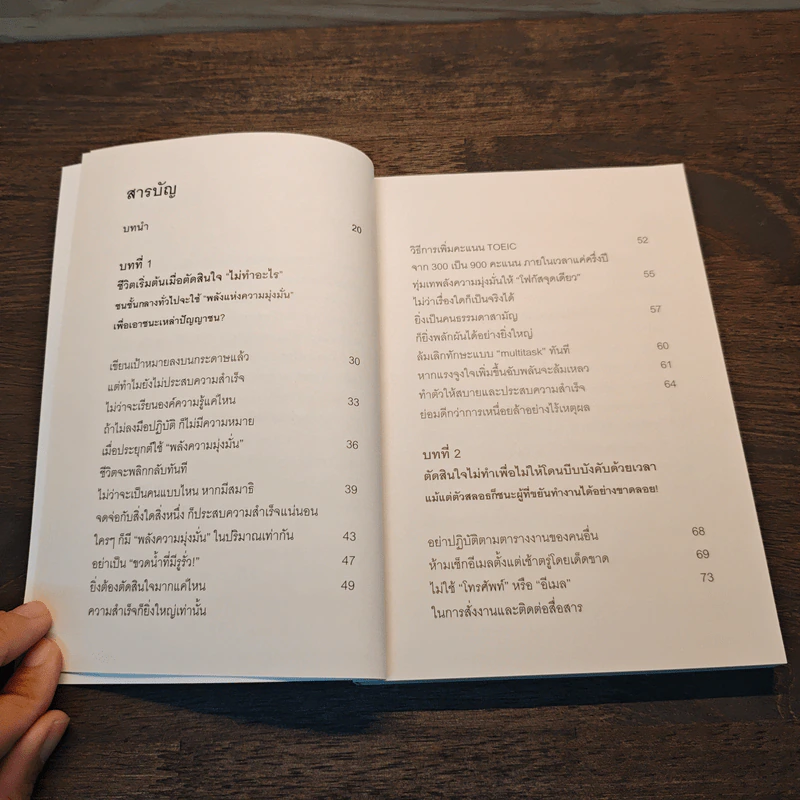 สารบัญ
บทนำ 20
บทที่ 1
ชีวิตเริ่มต้นเมื่อตัดสินใจ “ไม่ทำอะไร”
ชนชั้นกลางทั่วไปจะใช้ “พลังแห่งความมุ่งมั่น”
เพื่อเอาชนะเหล่าปัญญาชน?
เขียนเป้าหมายลงบนกระดาษแล้ว 30
แต่ทำไมยังไม่ประสบความสำเร็จ
ไม่ว่าจะเรียนองค์ความรู้แค่ไหน 33
ถ้าไม่ลงมือปฏิบัติ ก็ไม่มีความหมาย
เมื่อประยุกต์ใช้ “พลังความมุ่งมั่น” 36
ชีวิตจะพลิกกลับทันที
ไม่ว่าจะเป็นคนแบบไหน หากมีสมาธิ 39
จดจ่อกับสิ่งใดสิ่งหนึ่ง ก็ประสบความสำเร็จแน่นอน
ใครๆ ก็มี “พลังความมุ่งมั่น” ในปริมาณเท่ากัน 43
อย่าเป็น “ขวดน้ำที่มีรูรั่ว!” 47
ยิ่งต้องตัดสินใจมากแค่ไหน 49
ความสำเร็จก็ยิ่งใหญ่เท่านั้น
วิธีการเพิ่มคะแนน TOEIC 52
จาก 300 เป็น 900 คะแนน ภายในเวลาแค่ครึ่งปี
ทุ่มเทพลังความมุ่งมั่นให้ “โฟกัสจุดเดียว” 55
ไม่ว่าเรื่องใดก็เป็นจริงได้
ยิ่งเป็นคนธรรมดาสามัญ 57
ก็ยิ่งพลักผันได้อย่างยิ่งใหญ่
ล้มเลิกทักษะแบบ “multitask” ทันที 60
หากแรงจูงใจเพิ่มขึ้นฉับพลันจะล้มเหลว 61
ทำตัวให้สบายและประสบความสำเร็จ 64
ย่อมดีกว่าการเหนื่อยล้าอย่างไร้เหตุผล
บทที่ 2
ตัดสินใจไม่ทำเพื่อไม่ให้โดนบีบบังคับด้วยเวลา
แม้แต่ตัวสลอธก็ชนะผู้ที่ขยันทำงานได้อย่างขาดลอย!
อย่าปฏิบัติตามตารางงานของคนอื่น 68
ห้ามเช็กอีเมลตั้งแต่เช้าตรู่โดยเด็ดขาด 69
ไม่ใช้ “โทรศัพท์” หรือ “อีเมล” 73
ในการสั่งงานและติดต่อสื่อสาร